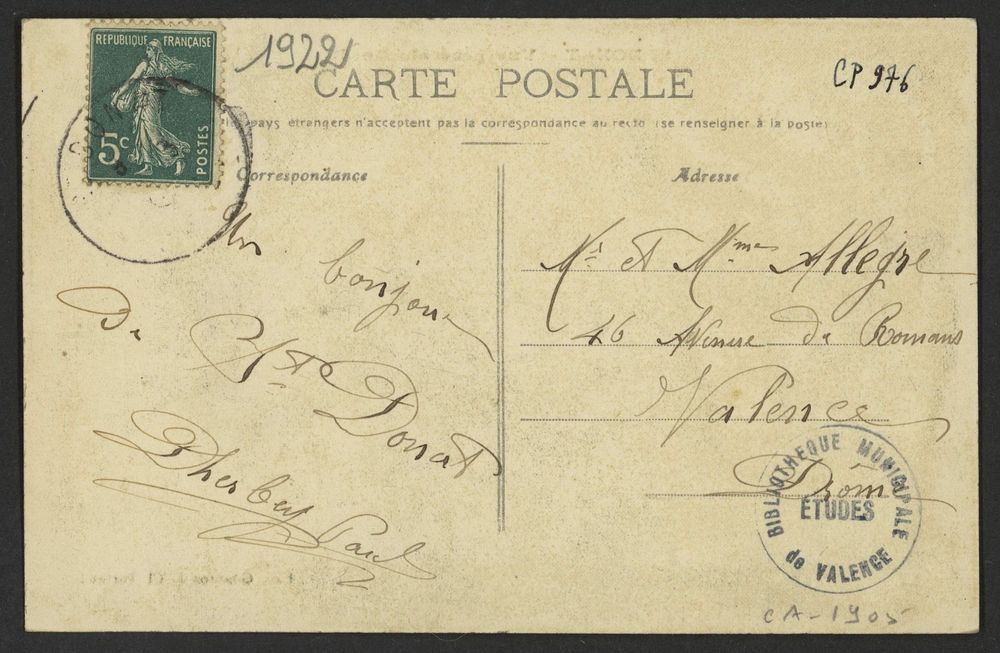 REPUBLIQUE FRANÇAISE
5c
POSTES
19221
CP 976
CARTE POSTALE
pays étrangers n'acceptent pas la correspondance au recto (se renseigner à la poste)
Correspondance
Adresse
Un bonjour
De St Donat
Dherbey Paul
Mr et Mme Allegre
46 Avenue de Romans
Valence
Drôme
BIBLIOTHEQUE MUNICIPALE
ETUDES
de VALENCE
CA-1905